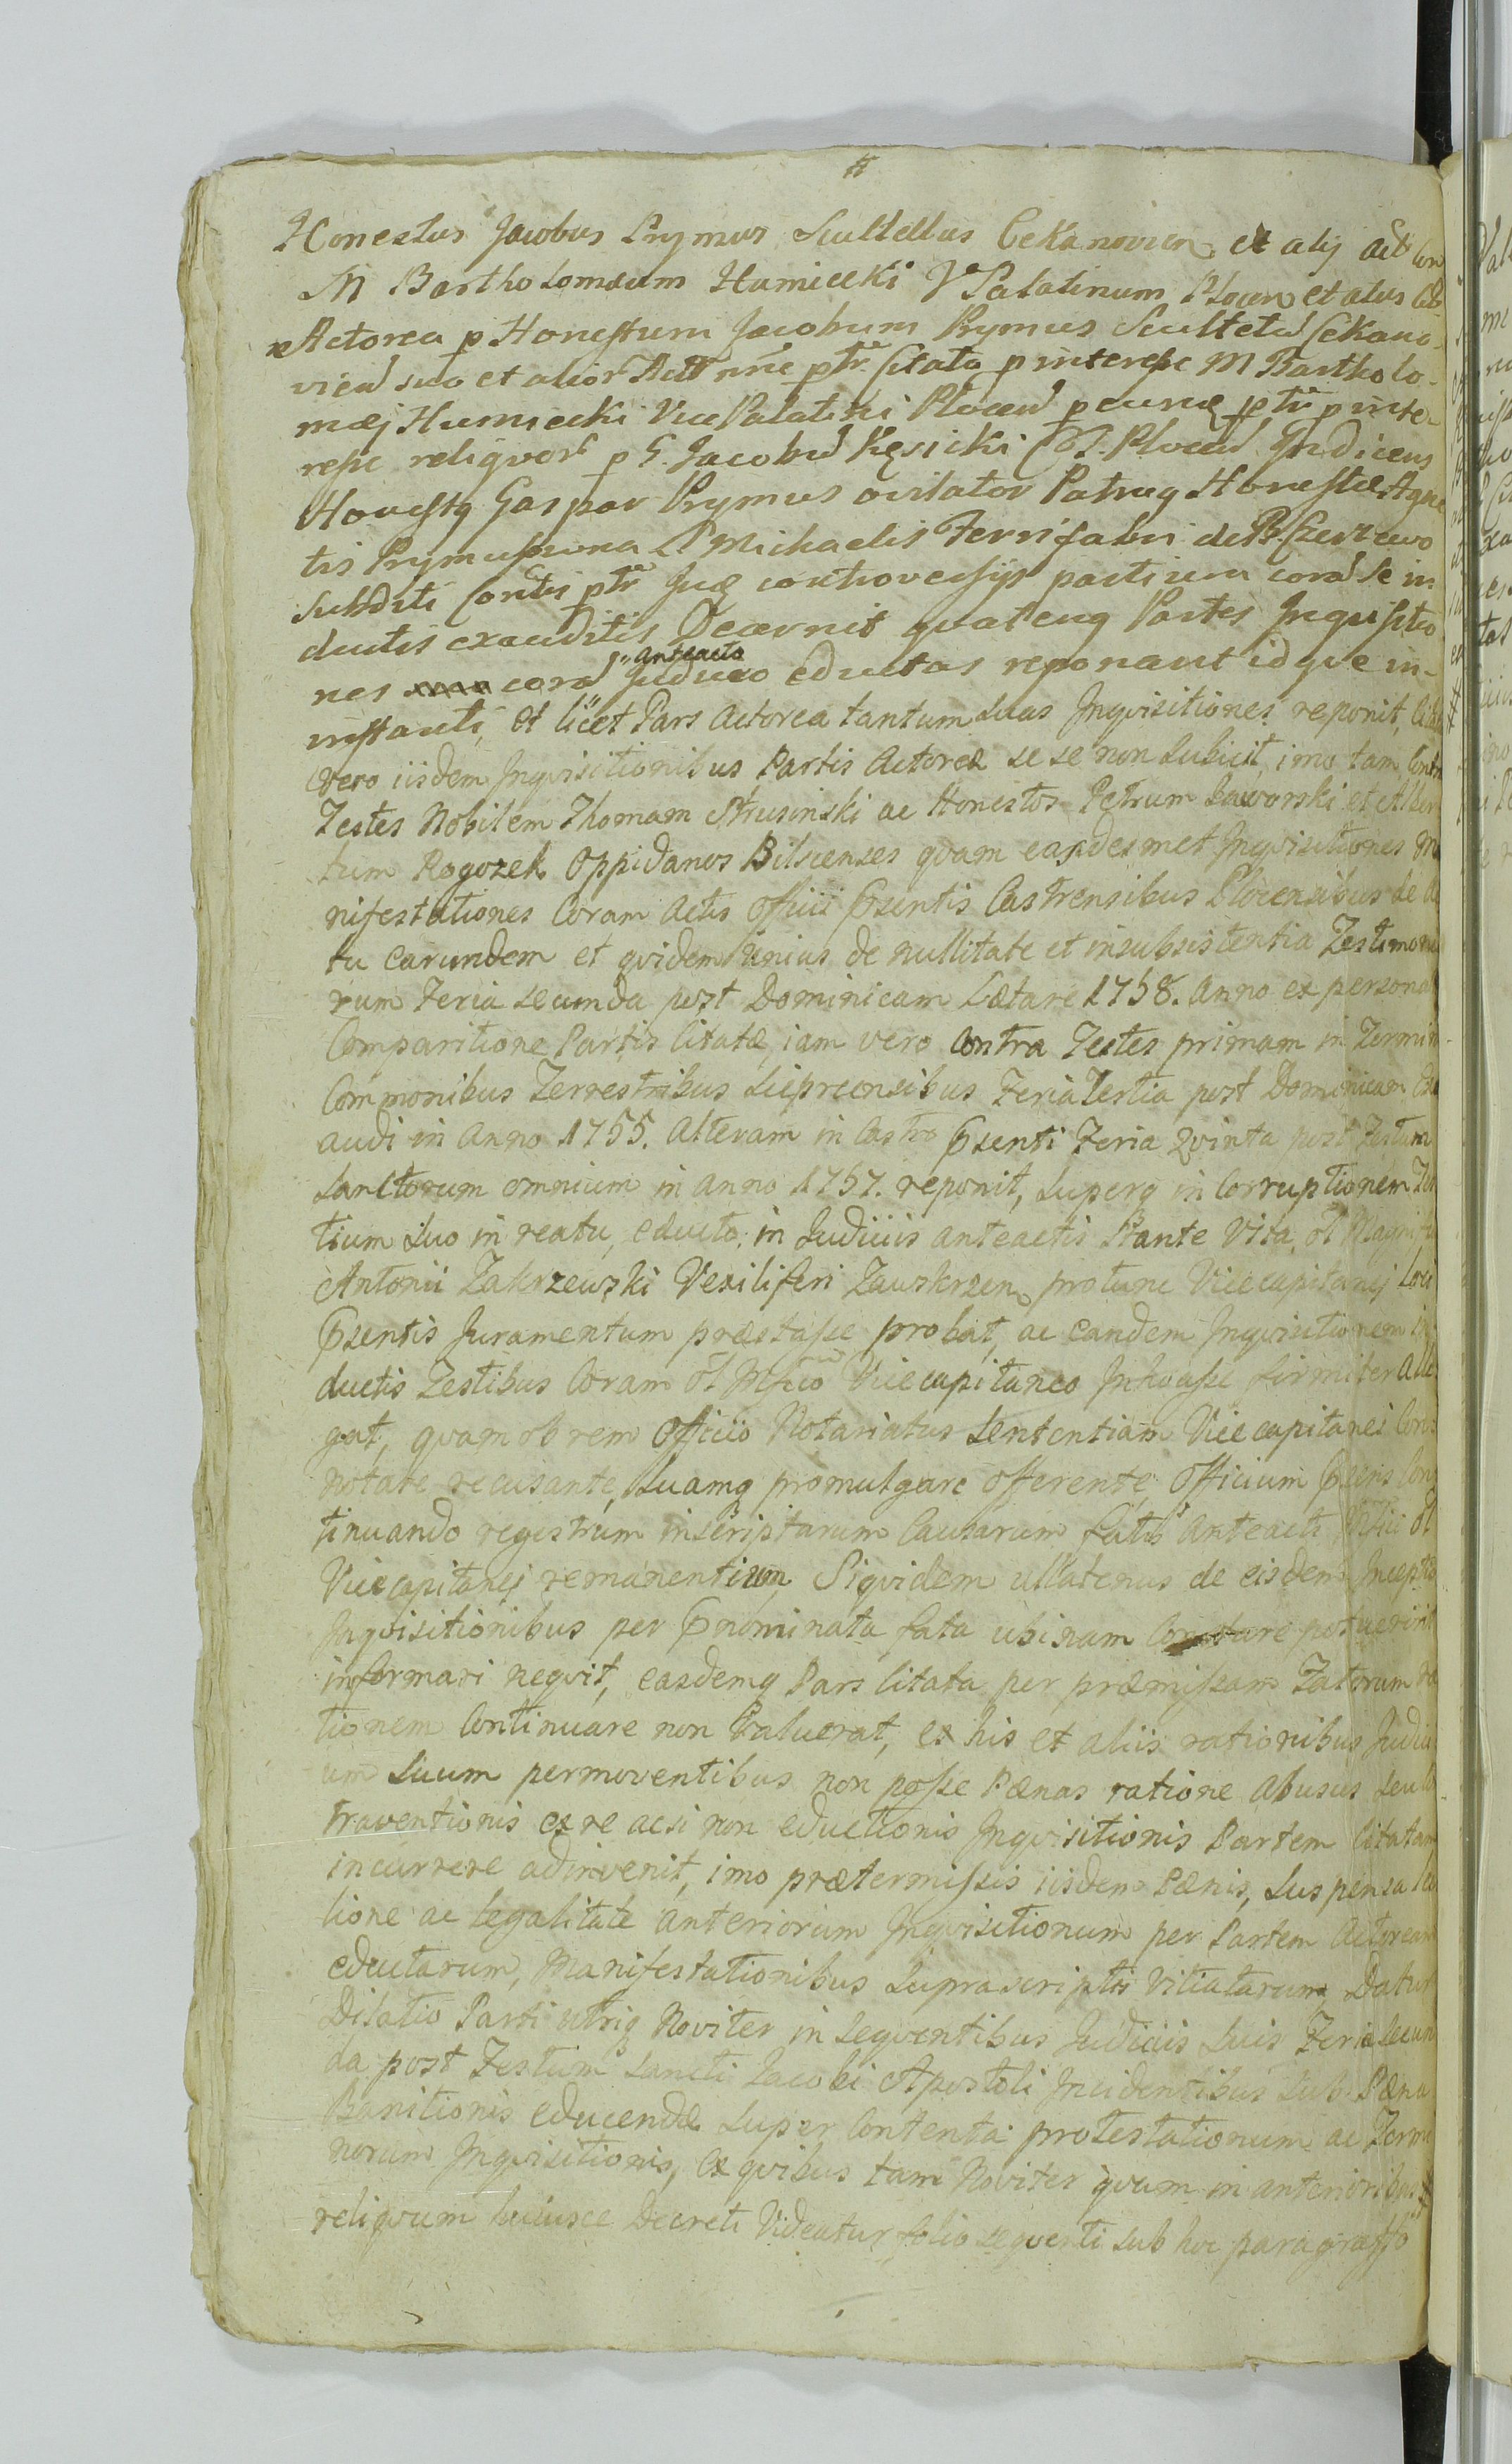 #
Honestus Jacobus Prymus Scultettus Cekanovien et alij act Con
M Bartholomæum Humiecki V Palatinum Plocen et alios Cit
Actorea p Honestum Jacobum Prymus Scultetū Cekano-
vieū suo et alior Act nrie ptr Citata p interesse M Bartholo-
mæj Humiecki Vice Palatini Ploceū p eunq ptr p inte-
resse reliqvor p G. Jacobū Kęsicki C. T. Ploceū Judicens
Honestq Gaspar Prymus ovilator Patruq Honestæ Agne
tis Prymusowna Michaelis Ferrifabri de Czerzewo
Subditi ptr Juq controversijs partium corā se in
ductis exauditis Decernit qvatenq Partes Inqvisitio
nes corā Judicio anteacto eductas reponant idqve in-
instanti, et licet Pars Actorea tantum suas Inqvisitiones reponit, Citata
vero iisdem Inqvisitionibus Partis Actoreæ se se non subicit, imo tam Contra
Testes Nobilem Thomam Strusinski ac Honestos Petrum Jaworski et Alber
tum Rogozek Oppidanos Bilscenses qvam easdesmet Inqvisitiones ma
nifestationes Coram Actis Officii Psentis Castrensibus Plocensibus de a
tu earundem et qvidem unius de nullitate et insubsistentia Testimonio
rum Feria secunda post Dominicam Lætare 1758. Anno ex personal
Comparitione Partis Citatæ, iam vero Contra Testes primam in Termin
Communibus Terrestribus Sieprcensibus Feria Tertia post Dominicam Ex
audi in Anno 1755. Alteram in Castro Psenti Feria Qvinta post Festum
Sanctorum omnium in Anno 1757. reponit, superq in Corruptionem Tes
tium suo in reatu, educto, in Judiciis anteactis stante Vita, ol Magnifi
Antonii Zakrzewski Vexiliferi Zawskrzen, protunc Vicecapitanej Loci
Psentis Juramentum præstasse probat, ac eandem Inqvisitionem in
ductis Testibus Coram ol Mfico Vicecapitaneo Inchoasse firmiter alle
gat, qvam ob rem Officio Notariatus sententiam Vicecapitanei Con
notare recusante, suamq promulgare offerente, Officium Psens Con
tinuando regestrum inscriptarum Causarum fatis anteacti Mfici ol
Vicecapitanej remanentium, Siqvidem ullatenus de eisdem Inceptis
Inqvisitionibus per Pnominata fata ubinam Constare potuerint
informari neqvit, easdemq Pars Citata per præmissam Fatorum ra
tionem Continuare non valuerat, ex his et aliis rationibus Judici
um suum permoventibus non posse Pænas ratione abusus seu Con
traventionis ex re acsi non eductionis Inqvisitionis Partem Citatam
incurrere adinvenit, imo prætermissis iisdem Pænis, suspensa lec
tione ac legalitate anteriorum Inqvisitionum per Partem Actoream
eductarum, Manifestationibus suprascriptis Vitiatarum, Datur
Dilatio Parti utriq Noviter in seqventibus Judiciis suis Feria secun
da post Festum Sancti Jacobi Apostoli Incidentibus sub Pæna
Banitionis educendæ super Contenta protestationum ac Termi
norum Inqvisitionis, ex qvibus tam Noviter qvam in anterioribus #
reliqvum huiusce Decreti Videatur folio seqventi sub hoc paragraffo